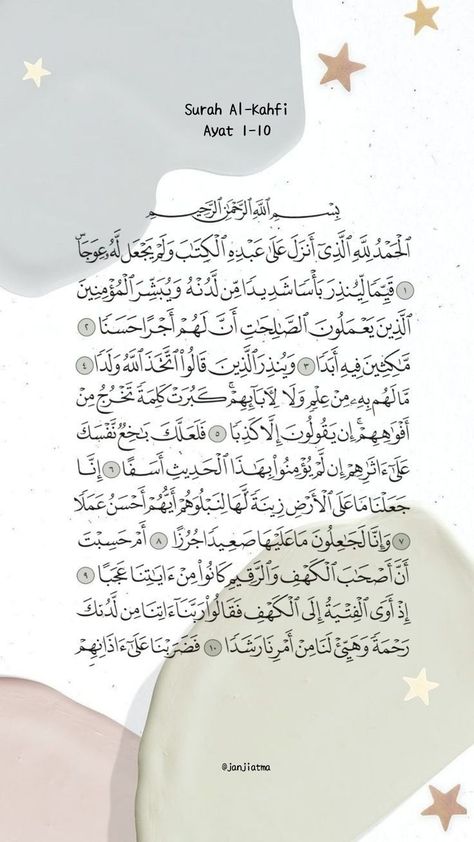 Surah Al-Kahfi
Ayat 1-10
بِسْمِ اللَّهِ الرَّحْمَٰنِ الرَّحِيمِ
الْحَمْدُ لِلَّهِ الَّذِي أَنْزَلَ عَلَىٰ عَبْدِهِ الْكِتَابَ وَلَمْ يَجْعَلْ لَهُ عِوَجًا ۜ
١ قَيِّمًا لِيُنْذِرَ بَأْسًا شَدِيدًا مِنْ لَدُنْهُ وَيُبَشِّرَ الْمُؤْمِنِينَ
الَّذِينَ يَعْمَلُونَ الصَّالِحَاتِ أَنَّ لَهُمْ أَجْرًا حَسَنًا ٢
مَاكِثِينَ فِيهِ أَبَدًا ٣ وَيُنْذِرَ الَّذِينَ قَالُوا اتَّخَذَ اللَّهُ وَلَدًا ٤
مَا لَهُمْ بِهِ مِنْ عِلْمٍ وَلَا لِآبَائِهِمْ ۚ كَبُرَتْ كَلِمَةً تَخْرُجُ مِنْ
أَفْوَاهِهِمْ ۚ إِنْ يَقُولُونَ إِلَّا كَذِبًا ٥ فَلَعَلَّكَ بَاخِعٌ نَفْسَكَ
عَلَىٰ آثَارِهِمْ إِنْ لَمْ يُؤْمِنُوا بِهَٰذَا الْحَدِيثِ أَسَفًا ٦ إِنَّا
جَعَلْنَا مَا عَلَى الْأَرْضِ زِينَةً لَهَا لِنَبْلُوَهُمْ أَيُّهُمْ أَحْسَنُ عَمَلًا
٧ وَإِنَّا لَجَاعِلُونَ مَا عَلَيْهَا صَعِيدًا جُرُزًا ٨ أَمْ حَسِبْتَ
أَنَّ أَصْحَابَ الْكَهْفِ وَالرَّقِيمِ كَانُوا مِنْ آيَاتِنَا عَجَبًا ٩
إِذْ أَوَى الْفِتْيَةُ إِلَى الْكَهْفِ فَقَالُوا رَبَّنَا آتِنَا مِنْ لَدُنْكَ
رَحْمَةً وَهَيِّئْ لَنَا مِنْ أَمْرِنَا رَشَدًا ١٠ فَضَرَبْنَا عَلَىٰ آذَانِهِمْ
@janjiatma